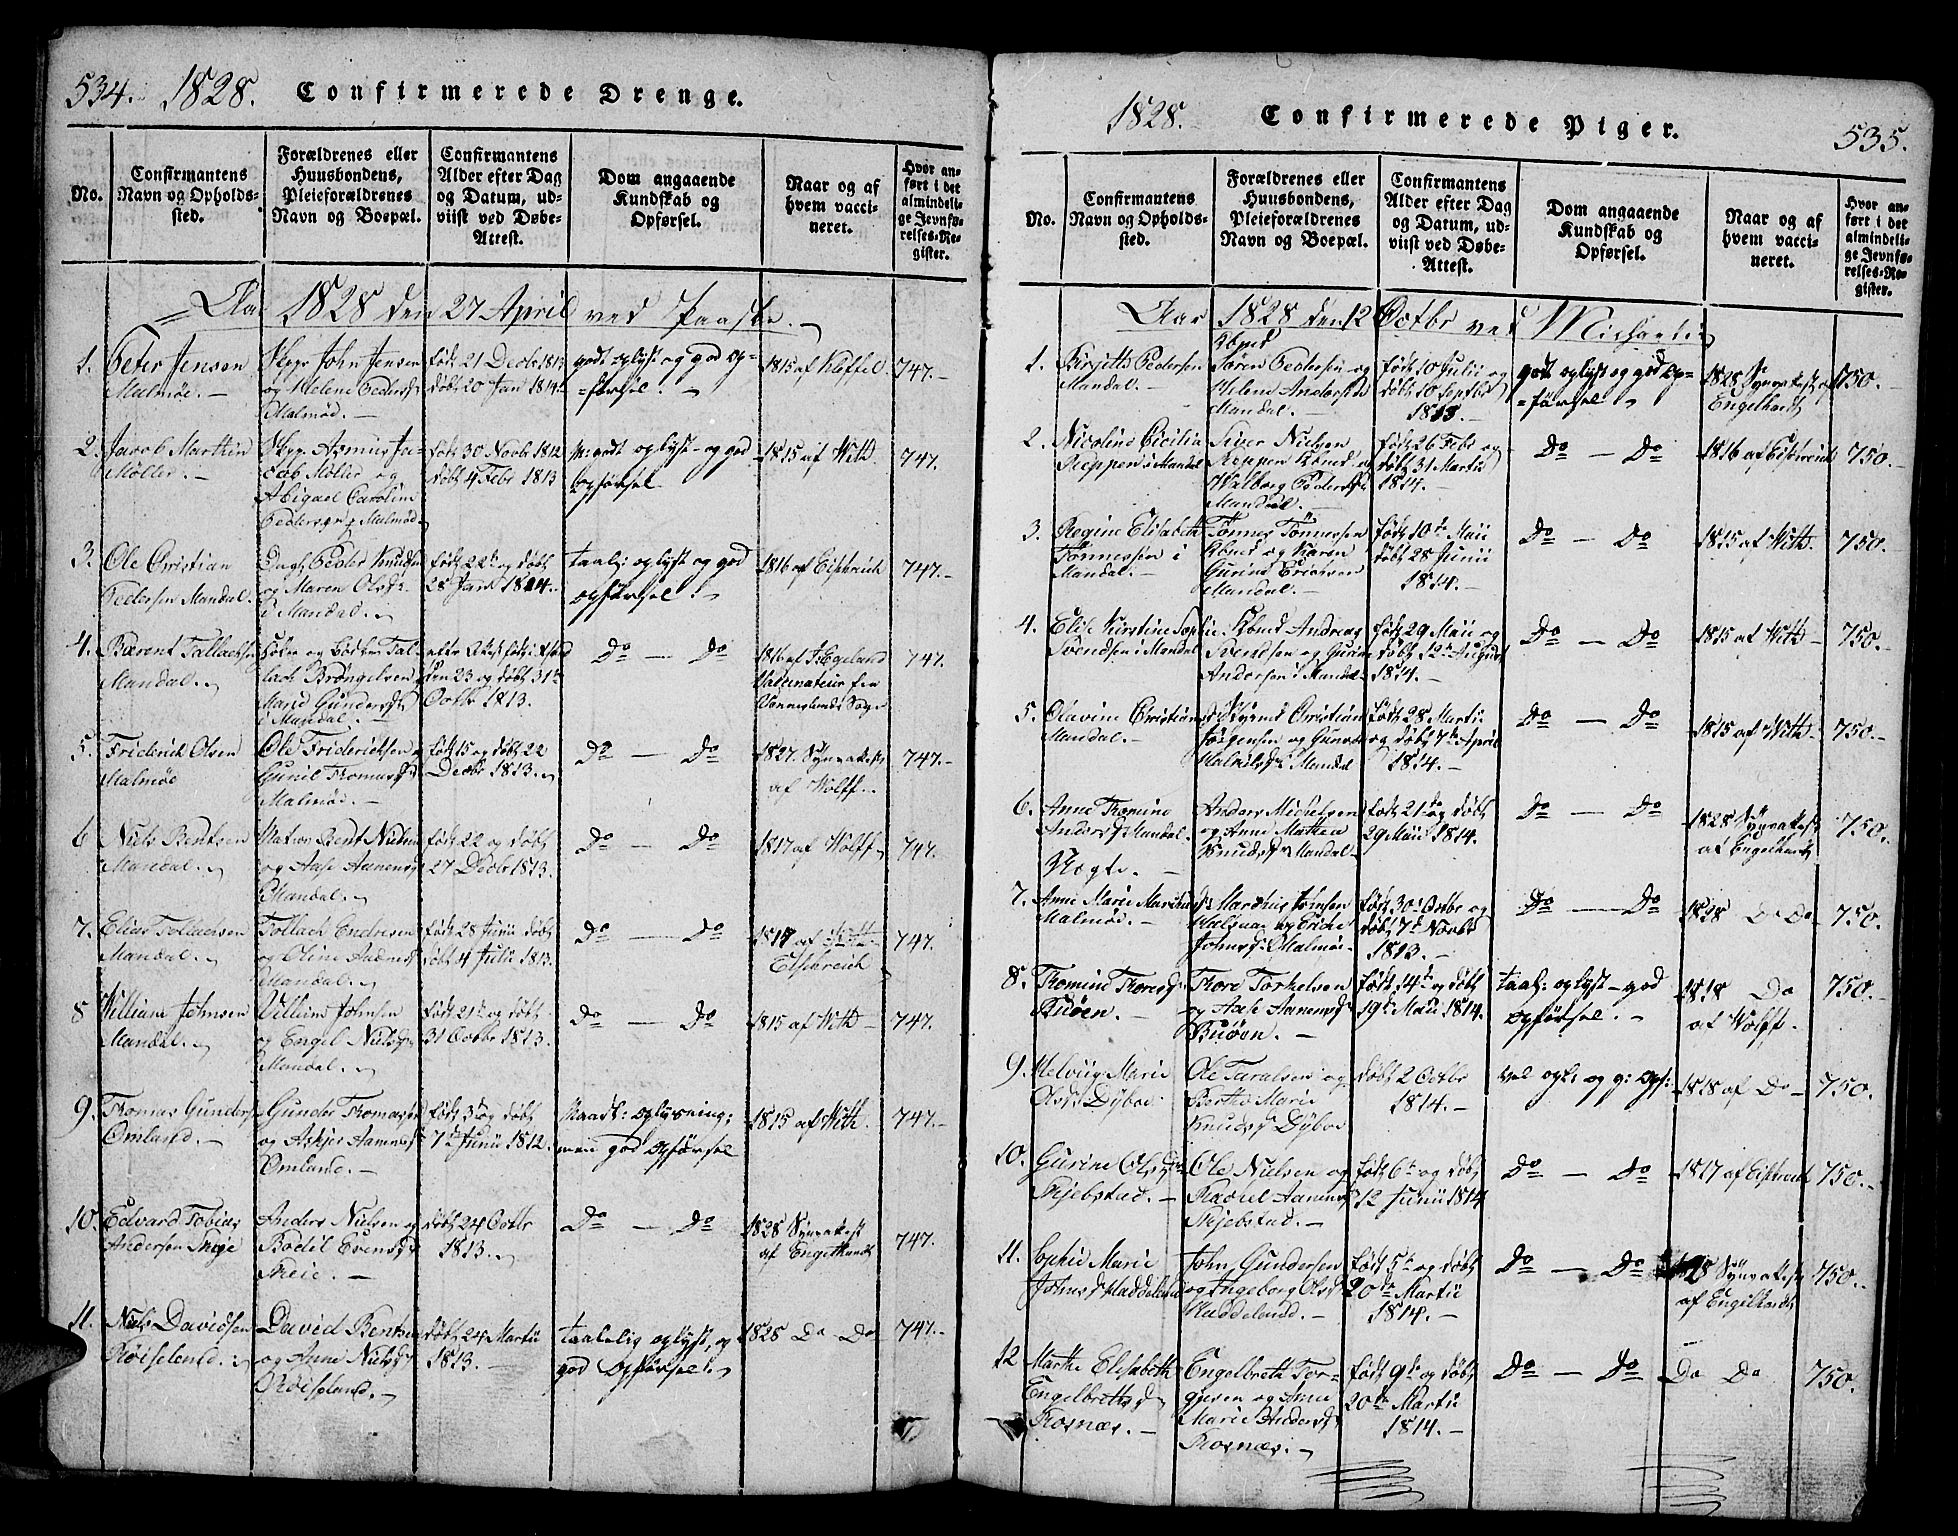 534. 1828. Confirmerede Drenge.
No.
Confirmantens
Navn og Opholds-
sted.
Forældrenes eller
Huusbondens,
Pleieforældrenes
Navn og Boepæl.
Confirmantens
Alder efter Dag
og Datum, ud-
viist ved Døbe-
Attest.
Dom angaaende
Kundskab og
Opførsel.
Naar og af
hvem vacci-
neret.
Hvor an-
ført i det
almindeli-
ge Jevnfø-
relses-Re-
gister.
Aar 1828 den 27 April ved Paaske.
1. Peter Jensen
Malmøe.
John Jensen
og Helene Peders
Malmøe.
født 21 Decbr 1813
døbt 20 Jan 1814.
godt oplyst og god op-
førsel.
1815 af Küffel
747.
2. Jacob Martin
Møller.
Asmus Ja-
cob Møller og
Abigael Caroline
Peders Malmøe
født 30 Novbr 1812
døbt 4 Febr 1813
godt oplyst og god
opførsel
1815 af With
747.
3. Ole Christian
Pedersen Mandal.
Peder Knuds
og Maren Ols
i Mandal.
født 22 og døbt
28 Janr 1814.
taal: oplyst og god
opførsel.
1816 af
747.
4. Bærent Tallachs
Mandal.
Tal-
lach Brøngelsen
Gunders
i Mandal.
den 23 og døbt 31
Octbr 1813.
Do — Do
1816 af Egeland
Vaccinateur for
Sogn
747.
5. Friderich Olsen
Malmøe
Ole Friderichsen og
Gunil Thomas
Malmøe.
født 15 og døbt 22
Decbr 1813.
Do — Do
1827. Synsattest
af Wolff
747.
6 Niels Bentsen
Mandal.
Bent Nielsen
og Aase Aanens
Mandal
født 22 og døbt
27 Decbr 1813.
Do — Do
1817 af Wolff
747.
7. Elias Tollachsen
Mandal.
Tollach Endresen
og Oline Andres
Mandal.
født 28 Junii døbt
døbt 4 Julii 1813.
Do — Do
1817 af
747.
8 William Johnsen
Mandal.
William Johnsen
og Engel Niels
Mandal.
født 21 og døbt
31 Octbr 1813.
Do — Do
1815 af With
747.
9. Thomas Gunders
Omland.
Gunder Thomassen
og Askjer Aanens
Omland.
født 3 og døbt
7 Junii 1812.
Maadl: oplysning;
men god opførsel
1815 af With
747.
10. Edvard Tobias
Andersen Skeje
Anders Nielsen og
Bodil Evens
Skeie.
døbt 24 Octbr
1813.
Do — Do
1828 Synsattest
af Engelhardt
747.
11. Niels Davidsen
Røiseland.
David Bentsen
og Anne Niels
Røiseland.
døbt 24 Martii
1813.
taalelig oplyst, og
god opførsel.
1828 Do Do
747.
1828. Confirmerede Piger. 535.
No.
Confirmantens
Navn og Opholds-
sted.
Forældrenes eller
Huusbondens,
Pleieforældrenes
Navn og Boepæl.
Confirmantens
Alder efter Dag
og Datum, ud-
viist ved Døbe-
Attest.
Dom angaaende
Kundskab og
Opførsel.
Naar og af
hvem vacci-
neret.
Hvor an-
ført i det
almindeli-
ge Jevnfø-
relses-Re-
gister.
Aar 1828 den 12 Octbr ved Michaeli
1. Birgitte Pedersen
Mandal.
Søren Pedersen og
Helene Anders
Mandal.
født 10 Julii og
døbt 10 Septbr
1813.
godt oplyst og god op-
førsel
1828 Synsattest af
Engelhardt
750.
2. Nicoline Cicilia
Reppen i Mandal
Siver Nielsen
Reppen
Walborg Peders
Mandal.
født 26 Febr og
døbt 31 Martii
1814.
Do — Do
1816 af
750.
3. Regine Elisabeth
Tønnessen i
Mandal.
Tønnes Tønnessen
og Karen
Gurine Erichsen
Mandal.
født 10 Maii
døbt 28 Junii
1814.
Do — Do
1815 af With
750.
4. Elise Kirstine Sophie
Svendsen i Mandal
Andreas
Svendsen og Gurine
Andersen i Mandal
født 29 Maii og
døbt 12 August
1814.
Do — Do
1815 af With
750.
5. Olavine Christians
Mandal.
Christian
Jørgensen og Gunvor
Mandal
født 28 Martii
og døbt 7 April
1814.
Do — Do
1815 af With
750.
6. Anne Thomine
Anders Mandal.
Anders Michelsen
og Anne Marthea
Knuds Mandal
født 21 og døbt
29 Maii 1814.
Do — Do
1828 Synsattest
af Engelhardt
750.
Nogte.
7. Anne Marie Marchus
Malmøe.
Marchus Johnsen
og Eriche
Johns Malmøe.
født 30 Octbr og
døbt 7 Novbr
1813.
Do — Do
1828 Do Do
750.
8. Thomine Thores
Buøen.
Thore Torkelsen
og Aase Aanens
Buøen.
født 14 og døbt
19 Maii 1814.
taal: oplyst god
opførsel.
1828 Do
af Wolff.
750.
9. Helvig Marie
Ols Dyboe.
Ole Taralsen og
Berthe Marie
Knuds Dyboe
døbt 2 Octbr
1814.
vel opl: og g: opf:
1828 af Do
750.
10. Gurine Ols
Skjebstad.
Ole Nielsen og
Rachel Aanens
Skjebstad.
født 6 og døbt
12 Junii 1814
Do — Do
1817 af
750.
11. Sophie Marie
Johns Haddeland
John Gundersen
og Ingeborg Ols
Haddeland.
født 5 og døbt
20 Martii
1814.
Do — Do
Synsattest
af Engelhardt
750.
12 Marthe Elisabeth
Engelbretts
Rosnæs.
Engelbreth Tor-
gjesen og Anne
Marie Anders
Rosnæs.
født 9 og døbt
20 Martii
1814.
Do — Do
Do Do
750.